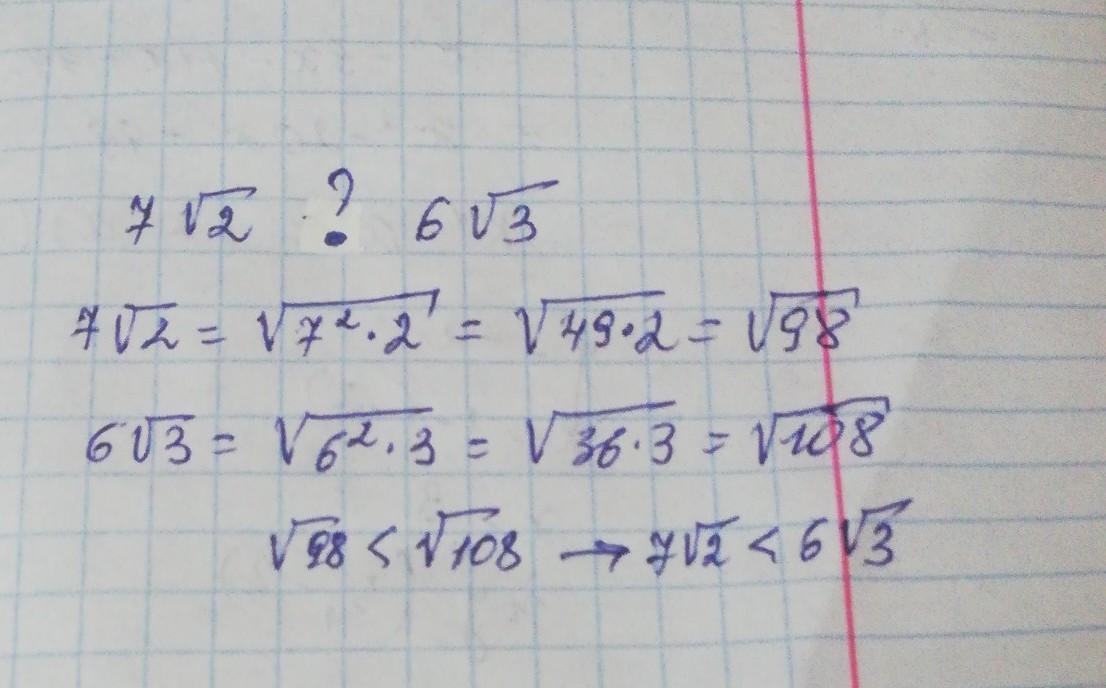 7√2 ? 6√3
7√2 = √7²·2 = √49·2 = √98
6√3 = √6²·3 = √36·3 = √108
√98 < √108 → 7√2 < 6√3